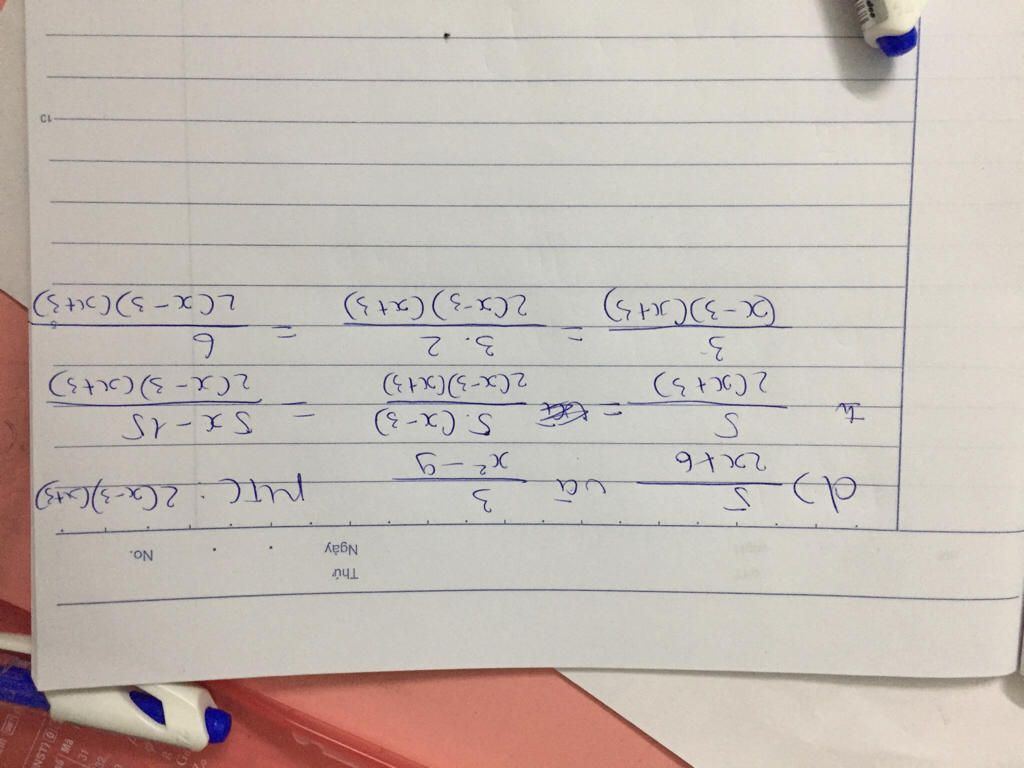 Thứ
Ngày
No.
d) 5/(2x+6) và 3/(x²-9) MTC: 2(x-3)(x+3)
5/(2(x+3)) = 5.(x-3)/(2(x-3)(x+3)) = (5x-15)/(2(x-3)(x+3))
3/((x-3)(x+3)) = 3.2/(2(x-3)(x+3)) = 6/(2(x-3)(x+3))
5
10